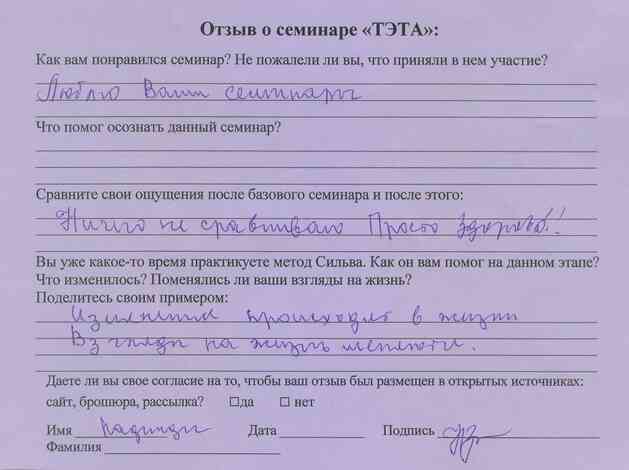 Отзыв о семинаре «ТЭТА»:
Как вам понравился семинар? Не пожалели ли вы, что приняли в нем участие?
Люблю Ваши семинары
Что помог осознать данный семинар?
Сравните свои ощущения после базового семинара и после этого:
Ничего не сравниваю Просто Здорово!!
Вы уже какое-то время практикуете метод Сильва. Как он вам помог на данном этапе?
Что изменилось? Поменялись ли ваши взгляды на жизнь?
Поделитесь своим примером:
происходят в жизни
Взгляды на жизнь
Даете ли вы свое согласие на то, чтобы ваш отзыв был размещен в открытых источниках:
сайт, брошюра, рассылка? □да □ нет
Имя Дата Подпись
Фамилия